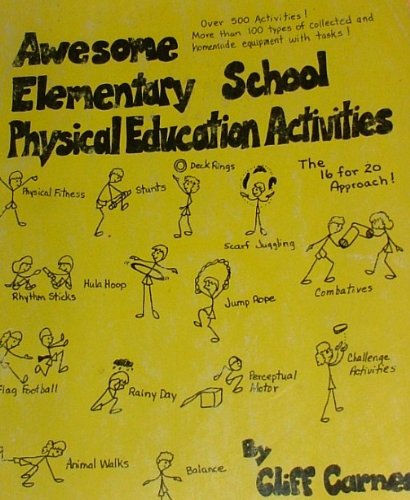 Over 500 Activities!
More than 100 types of collected and
homemade equipment with tasks!
Awesome
Elementary School
Physical Education Activities
Deck Rings
The
16 for 20
Approach!
Physical Fitness
Stunts
Scarf Juggling
Combatives
Rhythm Sticks
Hula Hoop
Jump Rope
Flag Football
Rainy Day
Perceptual
Motor
Challenge
Activities
Animal Walks
Balance
By
Cliff Carnes